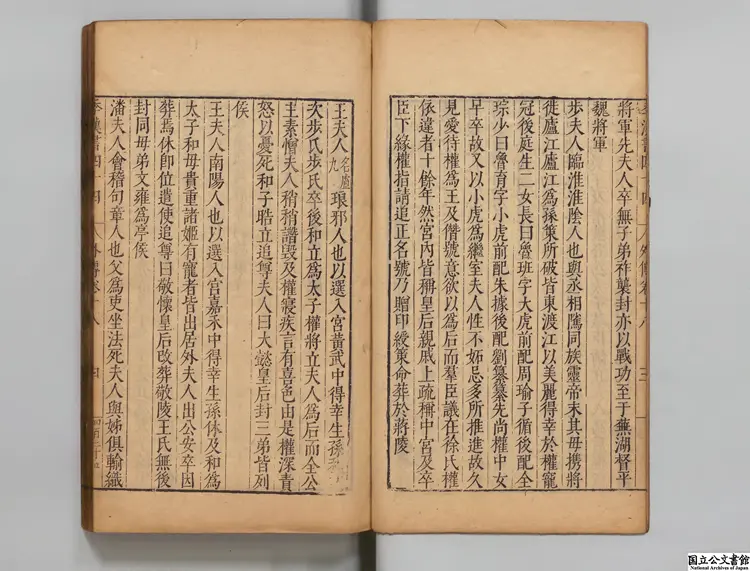 將軍先夫人卒無子弟祚襲封亦以戰功至于蕪湖督平
魏將軍
步夫人臨淮淮陰人也與丞相騭同族靈帝末其母携將
徙廬江廬江為孫策所破皆東渡江以美麗得幸於權寵
冠後庭生二女長曰魯班字大虎前配周瑜子循後配全
琮少曰魯育字小虎前配朱據後配劉纂纂先尚權中女
早卒故又以小虎為繼室夫人性不妬忌多所推進故久
見愛待權為王及僭號意欲以為后而羣臣議在徐氏權
依違者十餘年然宮內皆稱皇后親戚上疏稱中宮及卒
臣下緣權指請追正名號乃贈印綬策命葬於蔣陵
王夫人名廬九琅邪人也以選入宮黃武中得幸生孫
次步氏步氏卒後和立為太子權將立夫人為后而全公
主素憎夫人稍稍譖毀及權寢疾言有喜色由是權深責
怒以憂死和子晧立追尊夫人曰大懿皇后封三弟皆列
侯
王夫人南陽人也以選入宮嘉禾中得幸生孫休及和為
太子和母貴重諸姬有寵者皆出居外夫人出公安卒因
葬焉休即位遣使追尊曰敬懷皇后改葬敬陵王氏無後
封同母弟文雍為亭侯
潘夫人會稽句章人也父為吏坐法死夫人與姊俱輸織
季漢書四十四
外傳卷十八
三
季漢書四十四
外傳卷十八
四
国立公文書館
National Archives of Japan